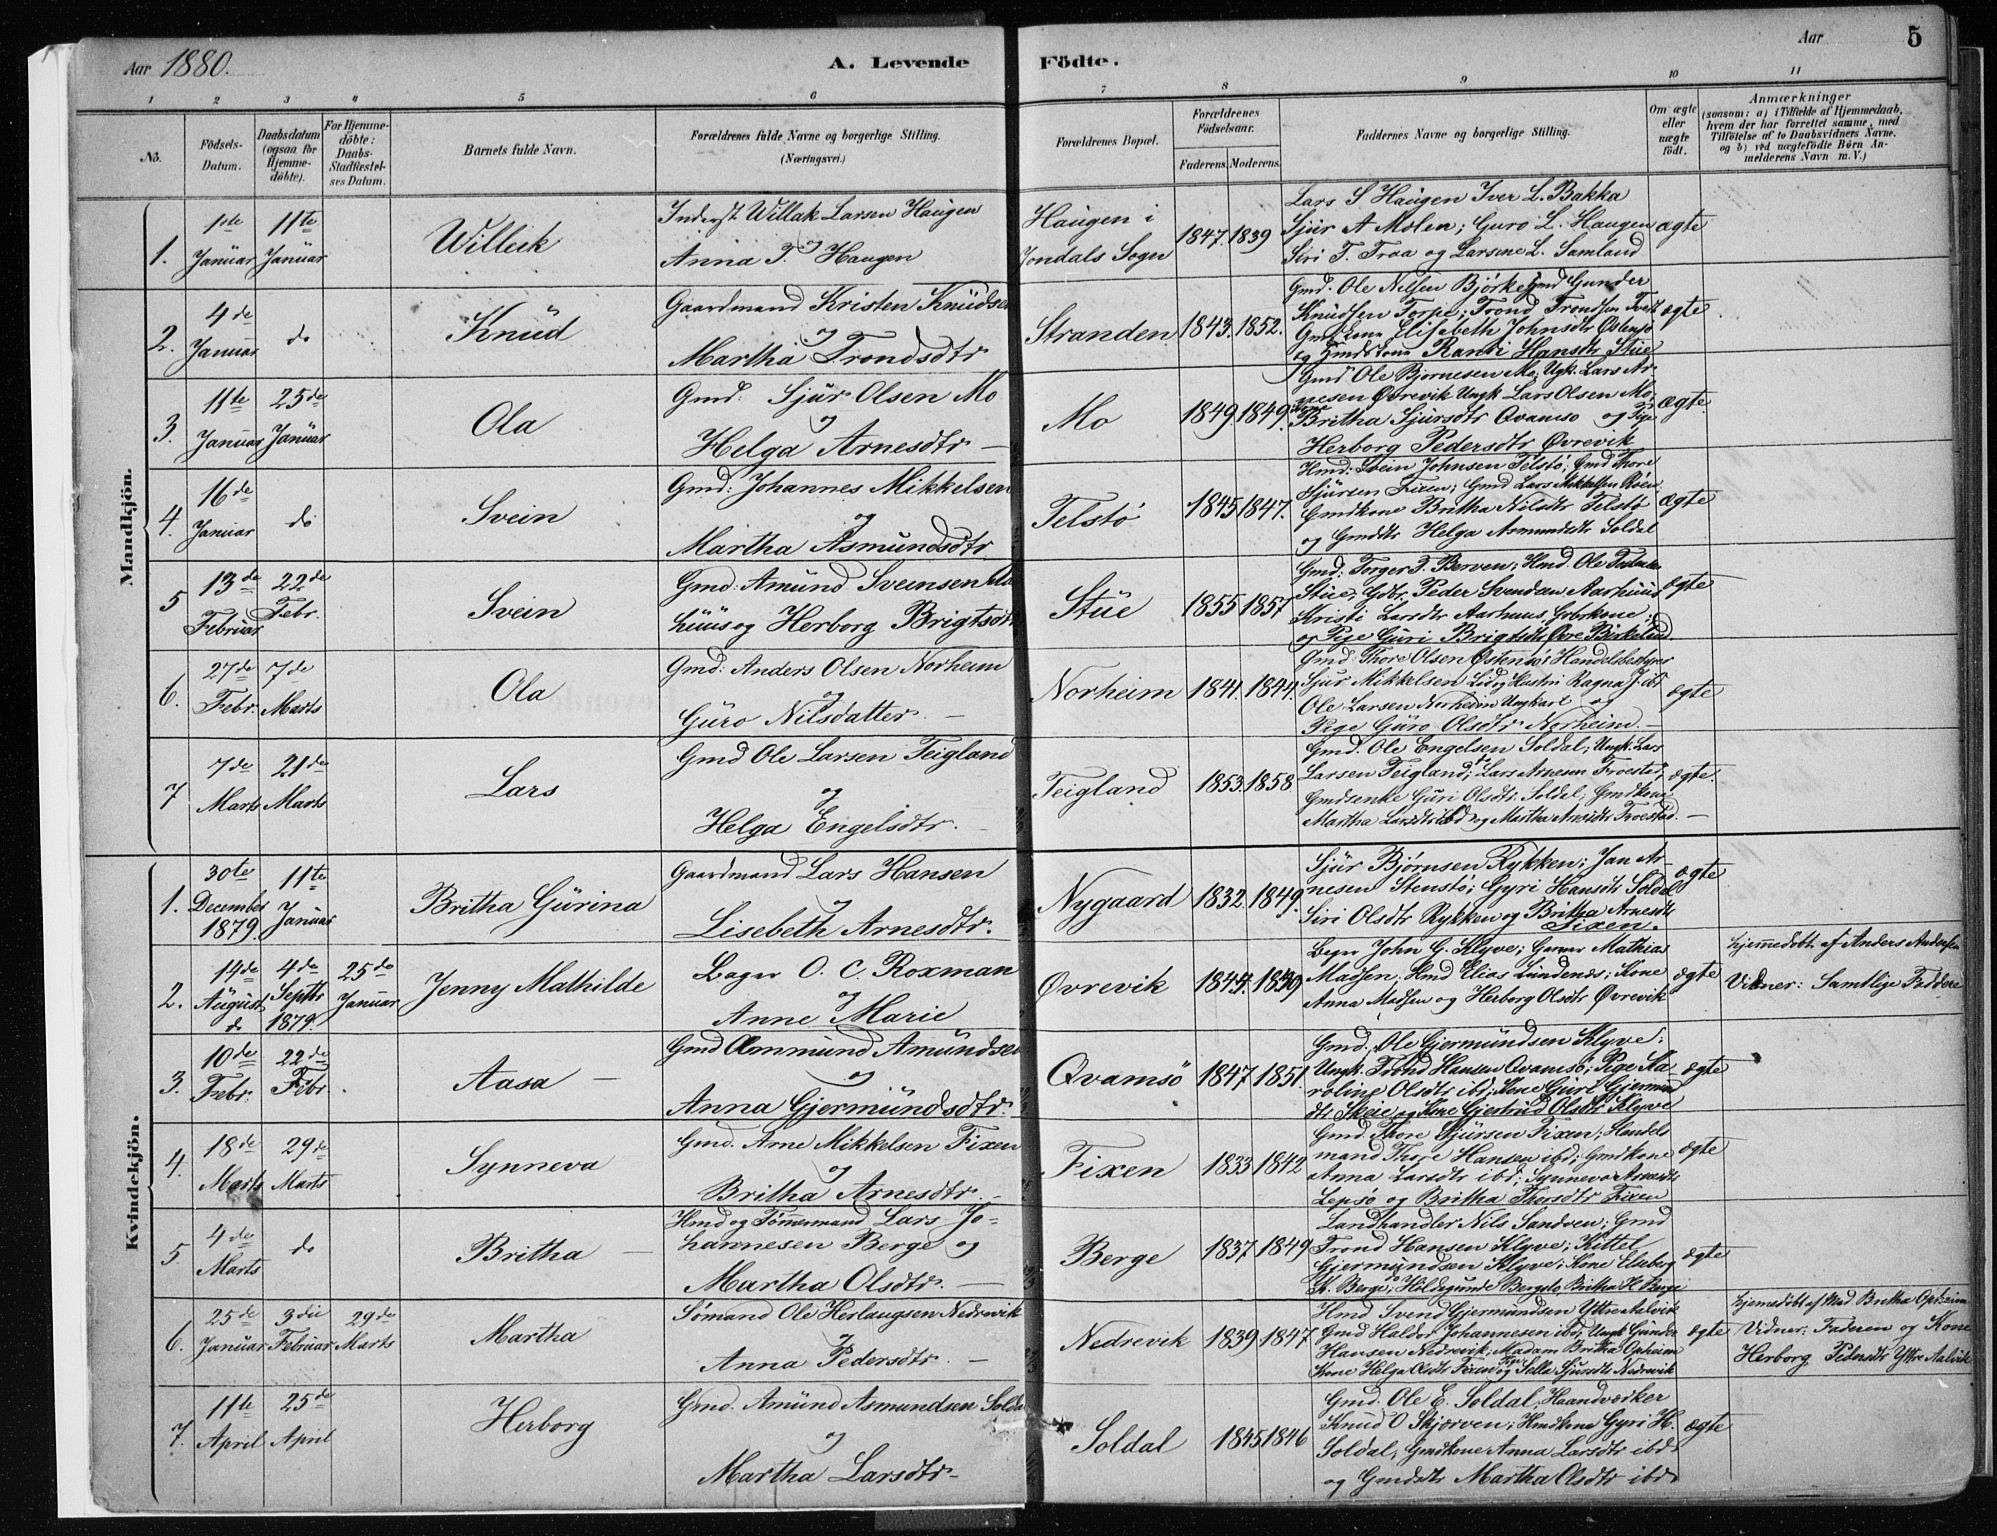 Aar 1880.
A. Levende Födte.
Aar
5
1 2 3 4 5 6 7 8 9 10 11
No.
Födsels-
Datum.
Daabsdatum
(ogsaa for
Hjemme-
döbte).
For Hjemme-
döbte:
Daabs-
Stadfæstel-
ses Datum.
Barnets fulde Navn.
Forældrenes fulde Navne og borgerlige Stilling.
(Næringsvei.)
Forældrenes Bopæl.
Forældrenes
Födselsaar.
Faderens. Moderens.
Faddernes Navne og borgerlige Stilling.
Om ægte
eller
uægte
födt.
Anmærkninger
(saasom: a) i Tilfælde af Hjemmedaab,
hvem der har forrettet samme, med
Tilföielse af to Daabsvidners Navne.
og b) ved uægtefödte Börn An-
melderens Navn m.V.)
Mandkjön.
1.
1ste
Januar
11te
Januar
Willeik
Inderst Willak Larsen Haugen
og
Anna T. Haugen
Haugen i
Jondals Sogn
1847. 1839
Lars S Haugen Iver L. Bakka
Sjur A Molen; Guro L. Haugen
Siri T. Traa og Larsine L. Samland
ægte
2.
4de
Januar
do
Knud
Gaardmand Kristen Knudsen
og
Martha Trondsdtr
Stranden
1843. 1852.
Gmd. Ole Nilsen Bjørke, Gmd Gunder
Knudsen Torpe; Trond Trondsen Tveit
Gmdkone Elisabeth Johnsdtr Østensø
og Gmdskone Ranvi Hansdtr Stue
ægte
3.
11te
Januar
25de
Januar
Ola
Gmd: Sjur Olsen Mo
og
Helga Arnesdtr —
Mo
1849. 1849.
Gmd Ole Bjørnesen Mo; Ugk. Lars Ar-
nesen Øvrevik Ungk Lars Olsen Mo,
Britha Sjursdtr Qvamsø og Pige
Herborg Pedersdtr Øvrevik
ægte
4.
16de
Januar
do
Svein
Gmd: Johannes Mikkelsen
og
Martha Asmundsdtr
Telstø
1845 1847.
Hmd: Svein Johnsen Telstø; Gmd Thore
Sjursen Fixen; Gmd Lars Mikkelsen Røen
Gmdkone Britha Nilsdtr Telstø
og Gmddtr Helga Asmundsdtr Soldal
ægte
5
13de
Februar
22de
Febr.
Svein
Gmd: Amund Sveinsen Aa
huus og Herborg Brigtsdtr
Stue
1855 1857
Gmd: Torger T. Berven; Hmd. Ole
Stue; Gdr. Peder Svendsen Aarhuus
Kristi Larsdtr Aarhuus Gbrkone;
og Pige Guri Brigtsdtr Øvre Birkeland
ægte
6.
27de
Febr.
7de
Marts
Ola
Gmd: Anders Olsen Norheim
og
Guro Nilsdatter. —
Norheim
1841. 1844.
Gmd: Thore Olsen Østensø; Handelsbestyrer
Sjur Mikkelsen Lid og Hustru Ragna J. ib
Ole Larsen Norheim Ungkarl og
Pige Guro Olsdtr Norheim. —
ægte
7
7de
Marts
21de
Marts
Lars
Gmd Ole Larsen Teigland
og
Helga Engelsdtr. —
Teigland
1853. 1858
Gmd. Ole Engelsen Soldal; Ungk. Lars
Larsen Teigland; Lars Arnesen Froestad,
Gmdsenke Guri Olsdtr. Soldal, Gmdkone
Martha Larsdtr ibd og Martha Arnesdtr Froestad. —
ægte.
Kvindekjön.
1.
30te
December
1879.
11te
Januar
Britha Gurina
Gaardmand Lars Hansen
og
Lisebeth Arnesdtr.
Nygaard
1832. 1849.
Sjur Bjørnsen Rykken; Jan Ar-
nesen Stenstø; Gyri Hansdtr Soldal
Siri Olsdtr Rykken og Britha Arnesdtr
Fixen.
ægte
2.
14de
August
do
4de
Septbr
1879.
25de
Januar
Jenny Mathilde
Bager O. C. Roxman
og
Anne Marie
Øvrevik
1844. 1839
Bager John G. Klyve; Garver Mathias
Madsen; Hmd Elias Lundenes; Kone
Anna Madsen og Herborg Olsdtr Øvrevik
ægte
hjemmedøbt af Anders Andersen
Vidner: Samtlige Faddere
3.
10de
Febr:
22de
Febr
Aasa —
Gmd Ammund Amundsen
og
Anna Gjermundsdtr.
Qvamsö
1847. 1851.
Gmd. Ole Gjermundsen Klyve:
Ungk. Trond Hansen Qvamsø; Pige Ka
roline Olsdtr ibd; Kone Guri Gjermun
dtr Skeie og Kone Gjertrud Olsdtr Klyve
ægte
4.
18de
Marts
29de
Marts
Synneva
Gmd. Arne Mikkelsen Fixen
og
Britha Arnesdtr. —
Fixen
1833. 1842
Gmd. Thore Sjursen Fixen; Handels
mand Thore Hansen ibd; Gmdkone
Anna Larsdtr ibd; Synneva Arnesdtr
Lepsø og Britha Thoresdtr Fixen
ægte
5
4de
Marts
do
Britha —
Hmd og Tømmermand Lars Jo-
hannesen Berge og
Martha Olsdtr. —
Berge
1837 1849
Landhandler Nils Sandven; Gmd
Trond Hansen Klyve; Kittel
Gjermundsen Klyve; Kone Elseberg
K. Berge, Hildegunde Bergslo, Britha H. Berge
ægte
6.
25de
Januar
3die
Februar
29de
Marts
Martha
Sømand Ole Herlaugsen Nedrevik
og
Anna Pedersdtr. —
Nedrevik
1839 1847
Hmd Svend Gjermundsen Yttre Aalvik
Gmd Haldor Johannesen ibd; Ungk Gunder
Hansen Nedrevik; Madam Britha Opheim
Kone Helga Olsdtr Fixen og Pige Sella Sjursdtr Nedrevik
ægte
hjemmedøbt af Mad Britha Opheim
Vidner: Faderen og Kone
Herborg Pedersdtr Yttre Aalvik
7.
11te
April
25de
April
Herborg
Gmd. Amund Asmundsen Soldal
og
Martha Larsdtr. —
Soldal
1845 1846
Gmd. Ole E. Soldal, Haandværker
Knud O Skjærven; Hmdkone Gyri H.
Soldal; Gmdkone Anna Larsdtr ibd
og Gmdsdtr Martha Olsdtr ibd
ægte